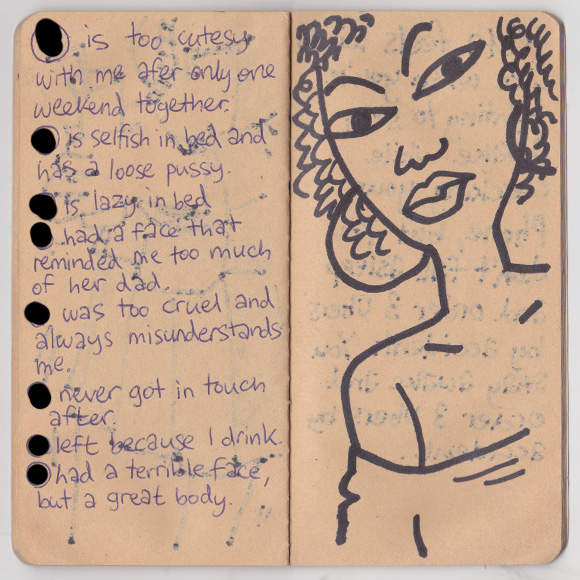 is too cutesy
with me afer only one
weekend together.
is selfish in bed and
has a loose pussy.
is lazy in bed
had a face that
reminded me too much
of her dad.
was too cruel and
always misunderstands
me.
never got in touch
after.
left because I drink.
had a terrible face,
but a great body.